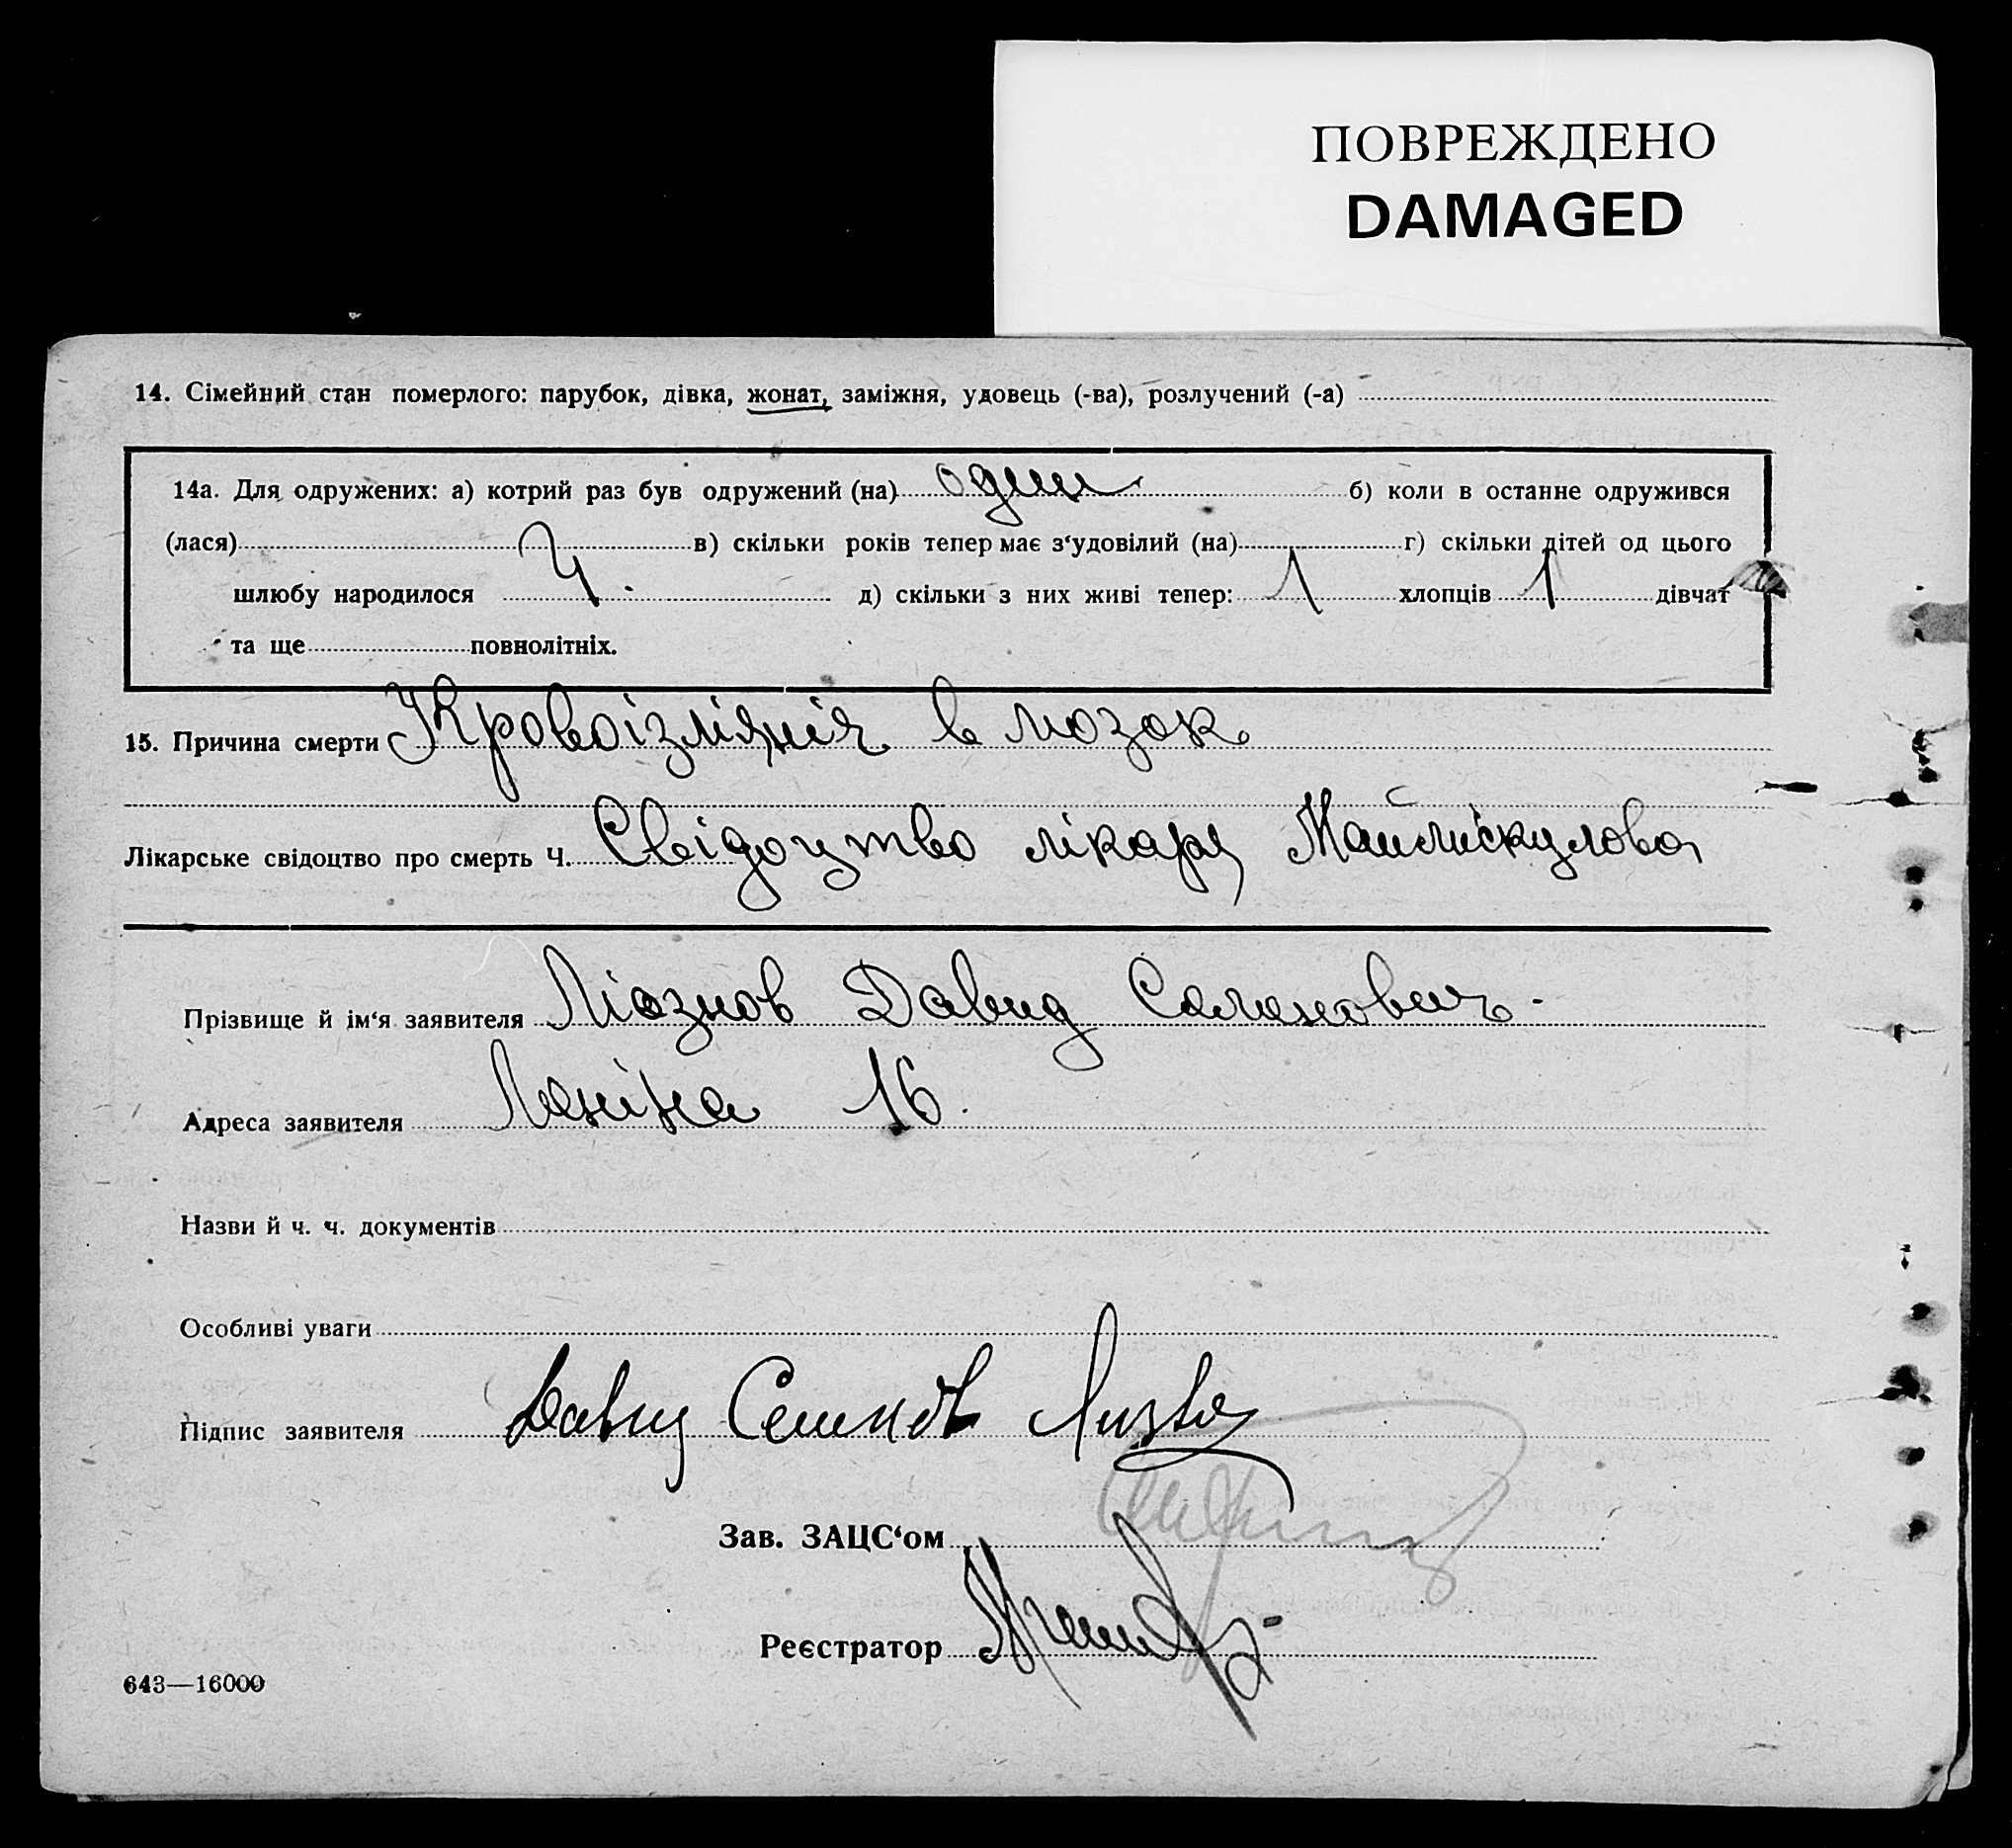 ПОВРЕЖДЕНО
DAMAGED
14. Сімейний стан померлого: парубок, дівка, жонат, заміжня, удовець (-ва), розлучений (-а)
14а. Для одружених: а) котрий раз був одружений (на) один б) коли в останнє одружився
(лася) в) скільки років тепер має з‘удовілий (на) г) скільки дітей од цього
шлюбу народилося 4. д) скільки з них живі тепер: 1 хлопців 1 дівчат
та ще повнолітніх.
15. Причина смерти Кровоізліянія в мозок
Лікарське свідоцтво про смерть Ч. Свідоцтво лікаря
Прізвище й ім‘я заявителя Ліознов Давид
Адреса заявителя Леніна 16.
Назви й ч. ч. документів
Особливі уваги
Підпис заявителя Давид
Зав. ЗАЦС‘ом
Реєстратор
643—16000